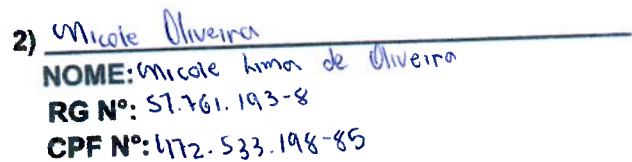 2) Micole Oliveira
NOME: Micole Lima de Oliveira
RG Nº: 57.761.193-8
CPF Nº: 472.533.198-85